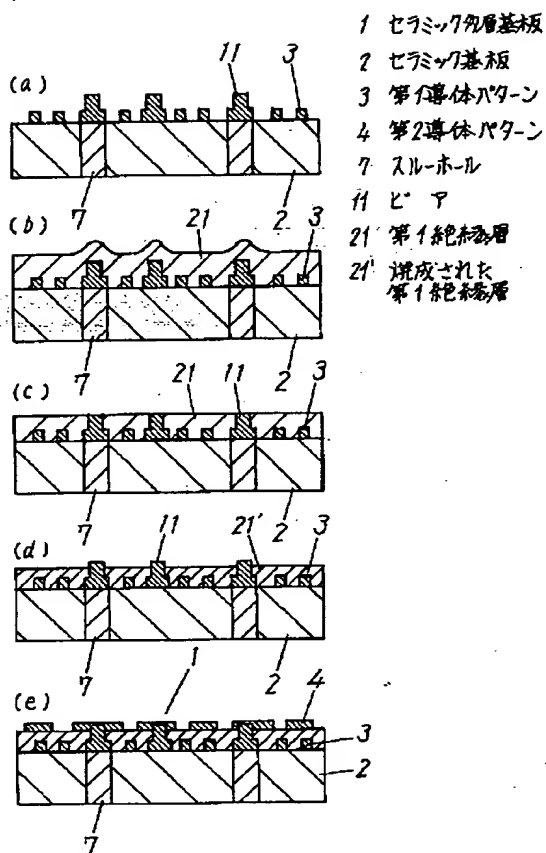 1 セラミック多層基板
2 セラミック基板
3 第1導体パターン
4 第2導体パターン
7 スルーホール
11 ビア
21 第1絶縁層
21' 焼成された
第1絶縁層
(a)
11
3
7
2
(b)
21
3
7
2
(c)
21
11
3
7
2
(d)
11
21'
3
7
2
1
(e)
4
3
2
7